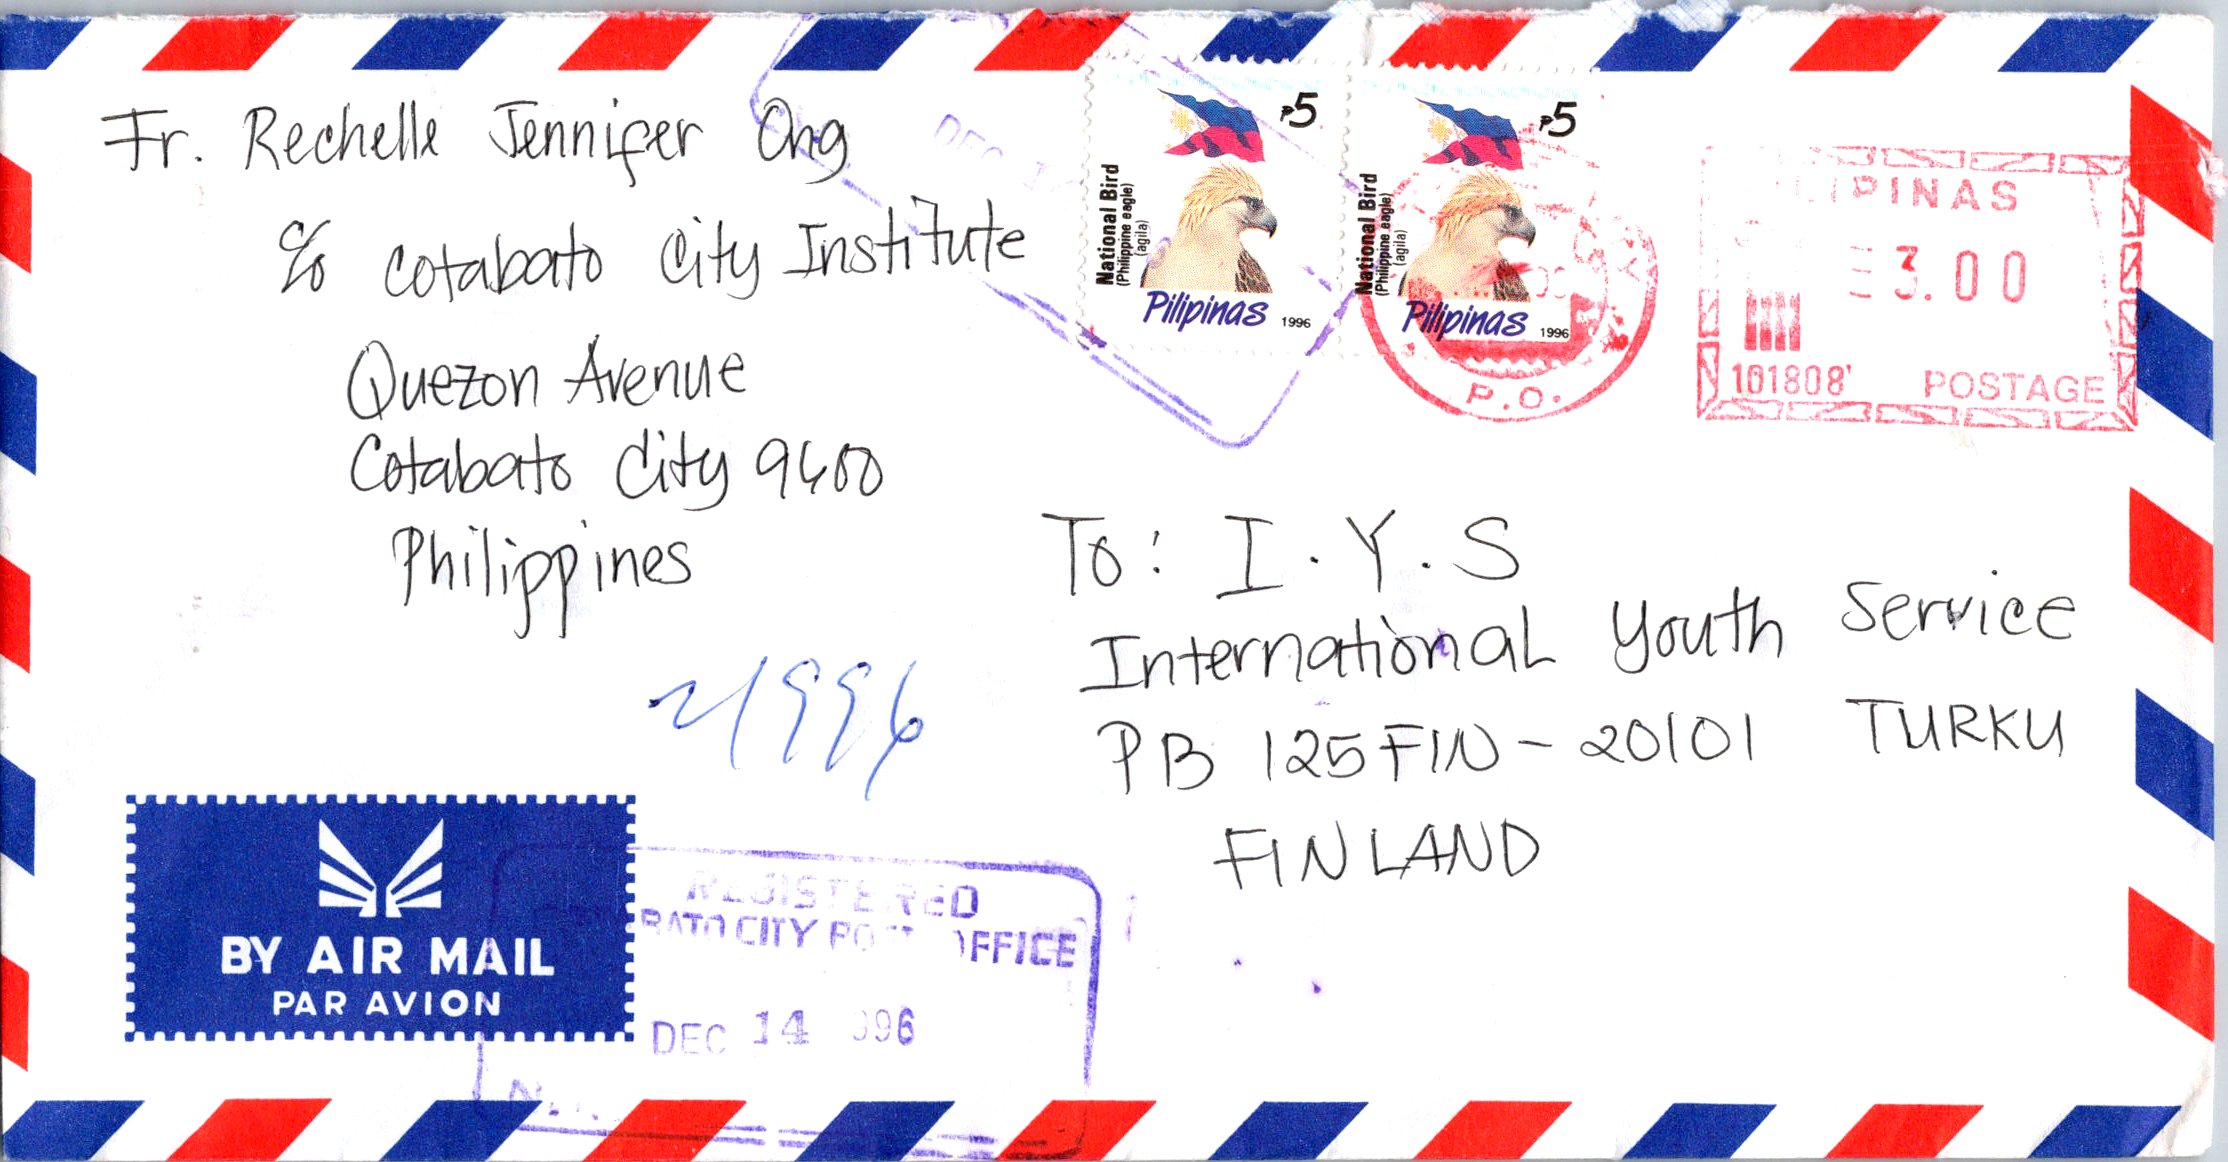 Fr. Rechelle Jennifer Ong
c/o Cotabato City Institute
Quezon Avenue
Cotabato City 9600
Philippines
₱5
National Bird
(Philippine eagle)
(agila)
Pilipinas 1996
₱5
National Bird
(Philippine eagle)
(agila)
Pilipinas 1996
DEC
P.O.
PINAS
3.00
101808
POSTAGE
To: I.Y.S
International Youth Service
PB 125 FIN-20101 TURKU
FINLAND
1996
BY AIR MAIL
PAR AVION
REGISTERED
BATO CITY POST OFFICE
DEC 14 996